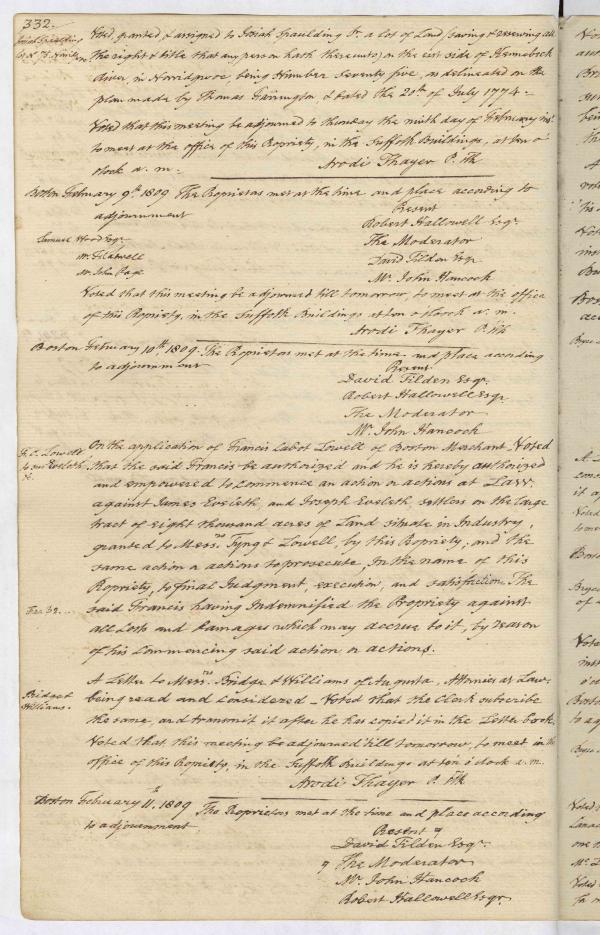 332.
Josiah Spaulding
Voted, granted & assigned to Josiah Spaulding Jr. a lot of Land, saving & reserving all
the right & title that any person hath thereunto, on the east side of Kennebeck
River, in Norridgwoc, being Number Seventy five, as delineated on the
plan made by Thomas Farrington, & dated the 20th of July 1774.
Voted that this meeting be adjourned to thursday the ninth day of February inst
to meet at the office of this Propriety, in the Suffolk Buildings, at ten o'
clock a. m.
Arodi Thayer P. Clk
Boston February 9th 1809 The Proprietors met at the time and place according to
adjournment
Present
Robert Hallowell Esqr.
Samuel Hood Esqr.
The Moderator
Mr. Filabell
David Tilden Esqr
Mr. John Page
Mr. John Hancock
Voted that this meeting be adjourned till tomorrow, to meet at the office
of this Propriety, in the Suffolk Buildings at ten o'clock a. m.
Arodi Thayer P. Clk
Boston February 10th, 1809. The Proprietors met at the time and place according
to adjournment
Present
David Tilden Esqr.
Robert Hallowell Esqr
The Moderator
Mr. John Hancock
F. C. Lowell
to sue Eveleth
&c.
On the application of Francis Cabot Lowell of Boston Merchant Voted
that the said Francis be authorized and he is hereby authorized
and empowered to commence an action or actions at Law
against James Eveleth, and Joseph Eveleth, settlers on the large
tract of eight thousand acres of Land situate in Industry,
granted to Messrs Tyng & Lowell, by this Propriety, and the
same action or actions to prosecute, In the name of this
Propriety, to final Judgment, execution, and satisfaction The
said Francis having Indemnified the Propriety against
all Loss and Damages which may accrue to it, by reason
of his Commencing said action or actions.
Bridge &
Williams.
A Letter to Messrs Bridge & Williams of Augusta, Attornies at Law
being read and considered – Voted that the Clerk subscribe
the same, and transmit it after he has copied it in the Letter book.
Voted that this meeting be adjourned 'till tomorrow, to meet in the
office of this Propriety, in the Suffolk Buildings at ten o'clock a. m.
Arodi Thayer P. Clk
Boston February 11th, 1809 The Proprietors met at the time and place according
to adjournment
Present
David Tilden Esqr.
The Moderator
Mr. John Hancock
Robert Hallowell Esqr.